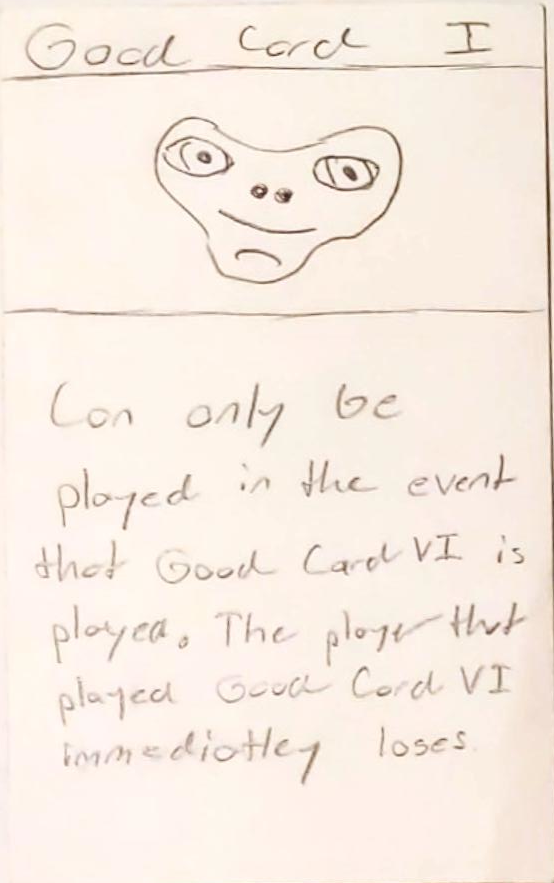 Good Card I
Can only be
played in the event
that Good Card VI is
played. The player that
played Good Card VI
immediatley loses.